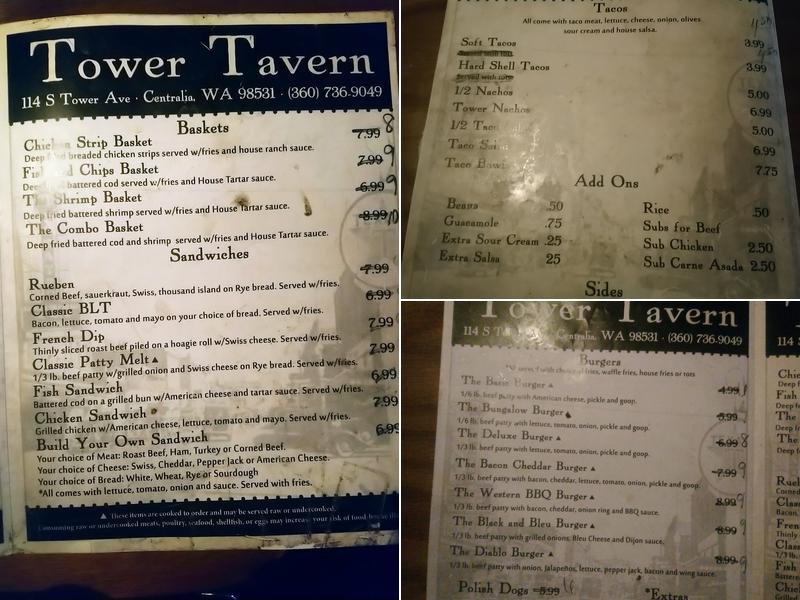 Tower Tavern
114 S Tower Ave · Centralia, WA 98531 · (360) 736-9049
Baskets
Chicken Strip Basket 7.99 8
Deep fried breaded chicken strips served w/fries and house ranch sauce.
Fish and Chips Basket 7.99 9
Deep fried battered cod served w/fries and House Tartar sauce.
The Shrimp Basket 6.99 9
Deep fried battered shrimp served w/fries and House Tartar sauce.
The Combo Basket 8.99 10
Deep fried battered cod and shrimp served w/fries and House Tartar sauce.
Sandwiches
Rueben 7.99
Corned Beef, sauerkraut, Swiss, thousand island on Rye bread. Served w/fries.
Classic BLT 6.99
Bacon, lettuce, tomato and mayo on your choice of bread. Served w/fries.
French Dip 7.99
Thinly sliced roast beef piled on a hoagie roll w/Swiss cheese. Served w/fries.
Classic Patty Melt ▲ 7.99
1/3 lb. beef patty w/grilled onion and Swiss cheese on Rye bread. Served w/fries.
Fish Sandwich 6.99
Battered cod on a grilled bun w/American cheese and tartar sauce. Served w/fries.
Chicken Sandwich 7.99
Grilled chicken w/American cheese, lettuce, tomato and mayo. Served w/fries.
Build Your Own Sandwich 6.99
Your choice of Meat: Roast Beef, Ham, Turkey or Corned Beef.
Your choice of Cheese: Swiss, Cheddar, Pepper Jack or American Cheese.
Your choice of Bread: White, Wheat, Rye or Sourdough
*All comes with lettuce, tomato, onion and sauce. Served with fries.
▲ These items are cooked to order and may be served raw or undercooked.
Consuming raw or undercooked meats, poultry, seafood, shellfish, or eggs may increase your risk of food-borne
Tacos
All come with taco meat, lettuce, cheese, onion, olives
sour cream and house salsa.
Soft Tacos 3.99
Hard Shell Tacos 3.99
Served with
1/2 Nachos 5.00
Tower Nachos 6.99
1/2 Taco 5.00
Taco 6.99
Taco 7.75
Add Ons
Beans .50
Guacamole .75
Extra Sour Cream .25
Extra Salsa 25
Rice .50
Subs for Beef
Sub Chicken 2.50
Sub Carne Asada 2.50
Sides
Tower Tavern
114 S Centralia, WA 98531 · (360) 736-9049
Burgers
choice of fries, waffle fries, house fries or tots
The Basic Burger ▲ 4.99
1/6 lb. beef patty with American cheese, pickle and goop.
The Bungalow Burger 5.99
1/6 lb. beef patty with lettuce, tomato, onion, pickle and goop.
The Deluxe Burger ▲ 6.99 8
1/3 lb. beef patty with lettuce, tomato, onion, pickle and goop.
The Bacon Cheddar Burger ▲ 7.99
1/3 lb. beef patty with bacon, cheddar, lettuce, tomato, onion, pickle and goop.
The Western BBQ Burger ▲ 8.99
1/3 lb. beef patty with bacon, cheddar, onion ring and BBQ sauce.
The Black and Bleu Burger ▲ 8.99
1/3 lb. beef patty with grilled onions, Bleu Cheese and Dijon sauce.
The Diablo Burger ▲ 8.99
1/3 lb. beef patty with onion, Jalapeños, lettuce, pepper jack, bacon and wing sauce.
Polish Dogs 5.99
*Extras